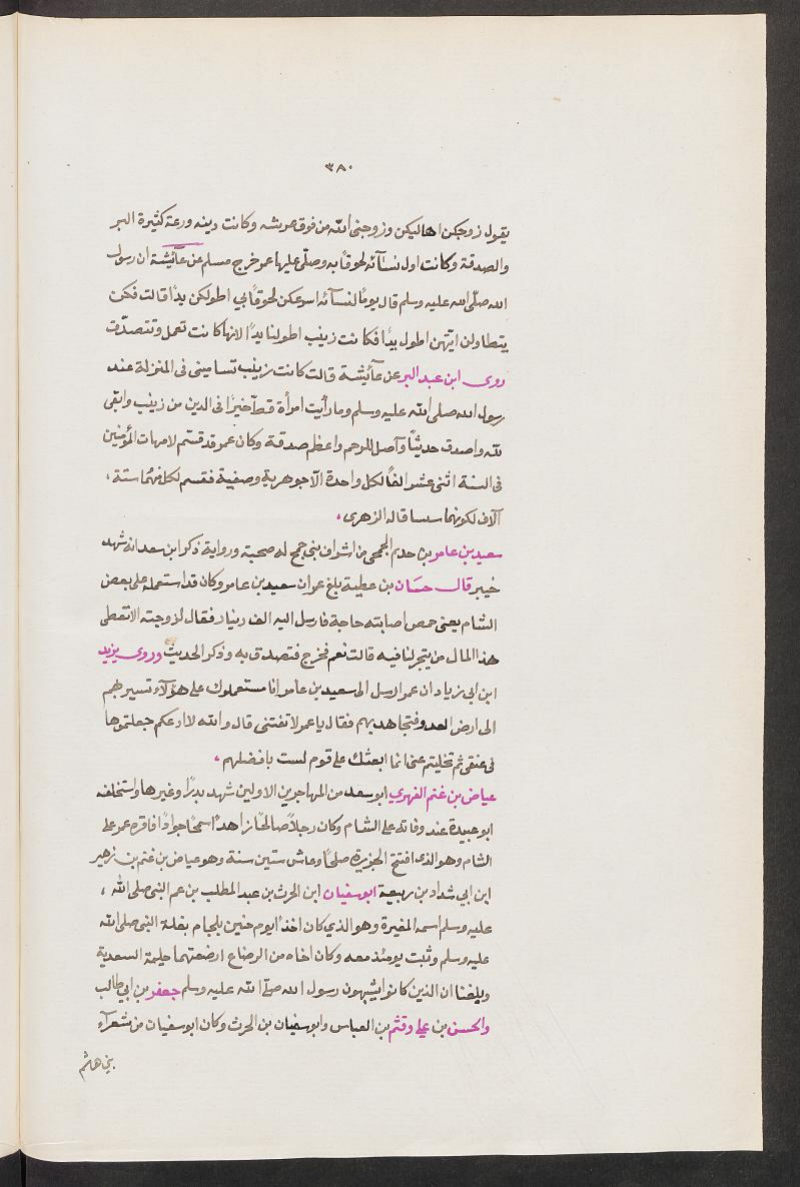 ٣٨٠
يقول زوجكن اهاليكن وزوجني الله من فوق عرشه وكانت دينه ورعة كثيرة البر
والصدقة وكانت اول نسآئه لحوقاً به وصلّى عليها عمر خرج مسلم عن عآئيشة ان رسول
الله صلّى الله عليه وسلم قال يوماً لنسآئه اسرعكن لحوقاً بي اطولكن يداً قالت فكن
يتطاولن ايتهن اطول يداً فكانت زينب اطولنا يداً لانها كانت تعمل وتتصدّق
روى ابن عبد البر عن عآئيشة قالت كانت زينب تساميني في المنزلة عند
رسول الله صلى الله عليه وسلم وما رأيت امرأة قط خيراً في الدين من زينب واتقى
لله واصدق حديثاً وآصل للرحم واعظم صدقة وكان عمر قد قسّم لامهات المؤمنين
في السنة اثنى عشر الفاً لكل واحدة الآ جوهرية وصفية فقسم لكل منهما ستة،
آلاف لكونهما سسا قاله الزهري.
سعيد بن عامر بن حديم الجمحي من اشراف بني جمح له صحبة ورواية ذكر ابن سعد انه شهد
خيبر قال حسّان بن عطية بلغ عمر ان سعيد بن عامر وكان قد استعمله على بعض
الشام يعني حمص اصابته حاجة فارسل اليه الف دينار فقال لزوجته الا نعطي
هذا المال من يتجر لنا فيه قالت نعم فخرج فتصدق به وذكر الحديث وروى يزيد
ابن ابي زياد ان عمر ارسل الى سعيد بن عامر انا مستعملوك على هؤلآء تسير بهم
الى ارض العدو فتجاهد بهم فقال يا عمر لا تفتني قال والله لا ادعكم جعلتموها
في عنقي ثم تخليتم عني انما ابعثك على قوم لست بافضلهم.
عياض بن غنم الفهري ابو سعد من المهاجرين الاولين شهد بدراً وغيرها واستخلفه
ابو عبيدة عند وفاته على الشام وكان رجلاً صالحاً زاهداً سمحاً جواداً فاقره عمر على
الشام وهو الذي افتتح الجزيرة صلحاً وعاش ستين سنة وهو عياض بن غنم بن زهير
ابن ابي شداد بن ربيعة ابو سفيان ابن الحرث بن عبد المطلب بن عم النبي صلى الله،
عليه وسلم اسمه المغيرة وهو الذي كان اخذاً يوم حنين بلجام بغلة النبي صلى الله
عليه وسلم وثبت يومئذ معه وكان اخاه من الرضاع ارضعتهما حليمة السعدية
وبلغنا ان الذين كانوا يشبهون رسول الله صلّى الله عليه وسلم جعفر بن ابي طالب
والحسن بن علي وقثم بن العباس وابو سفيان بن الحرث وكان ابو سفيان من شعرآء
بني هاشم